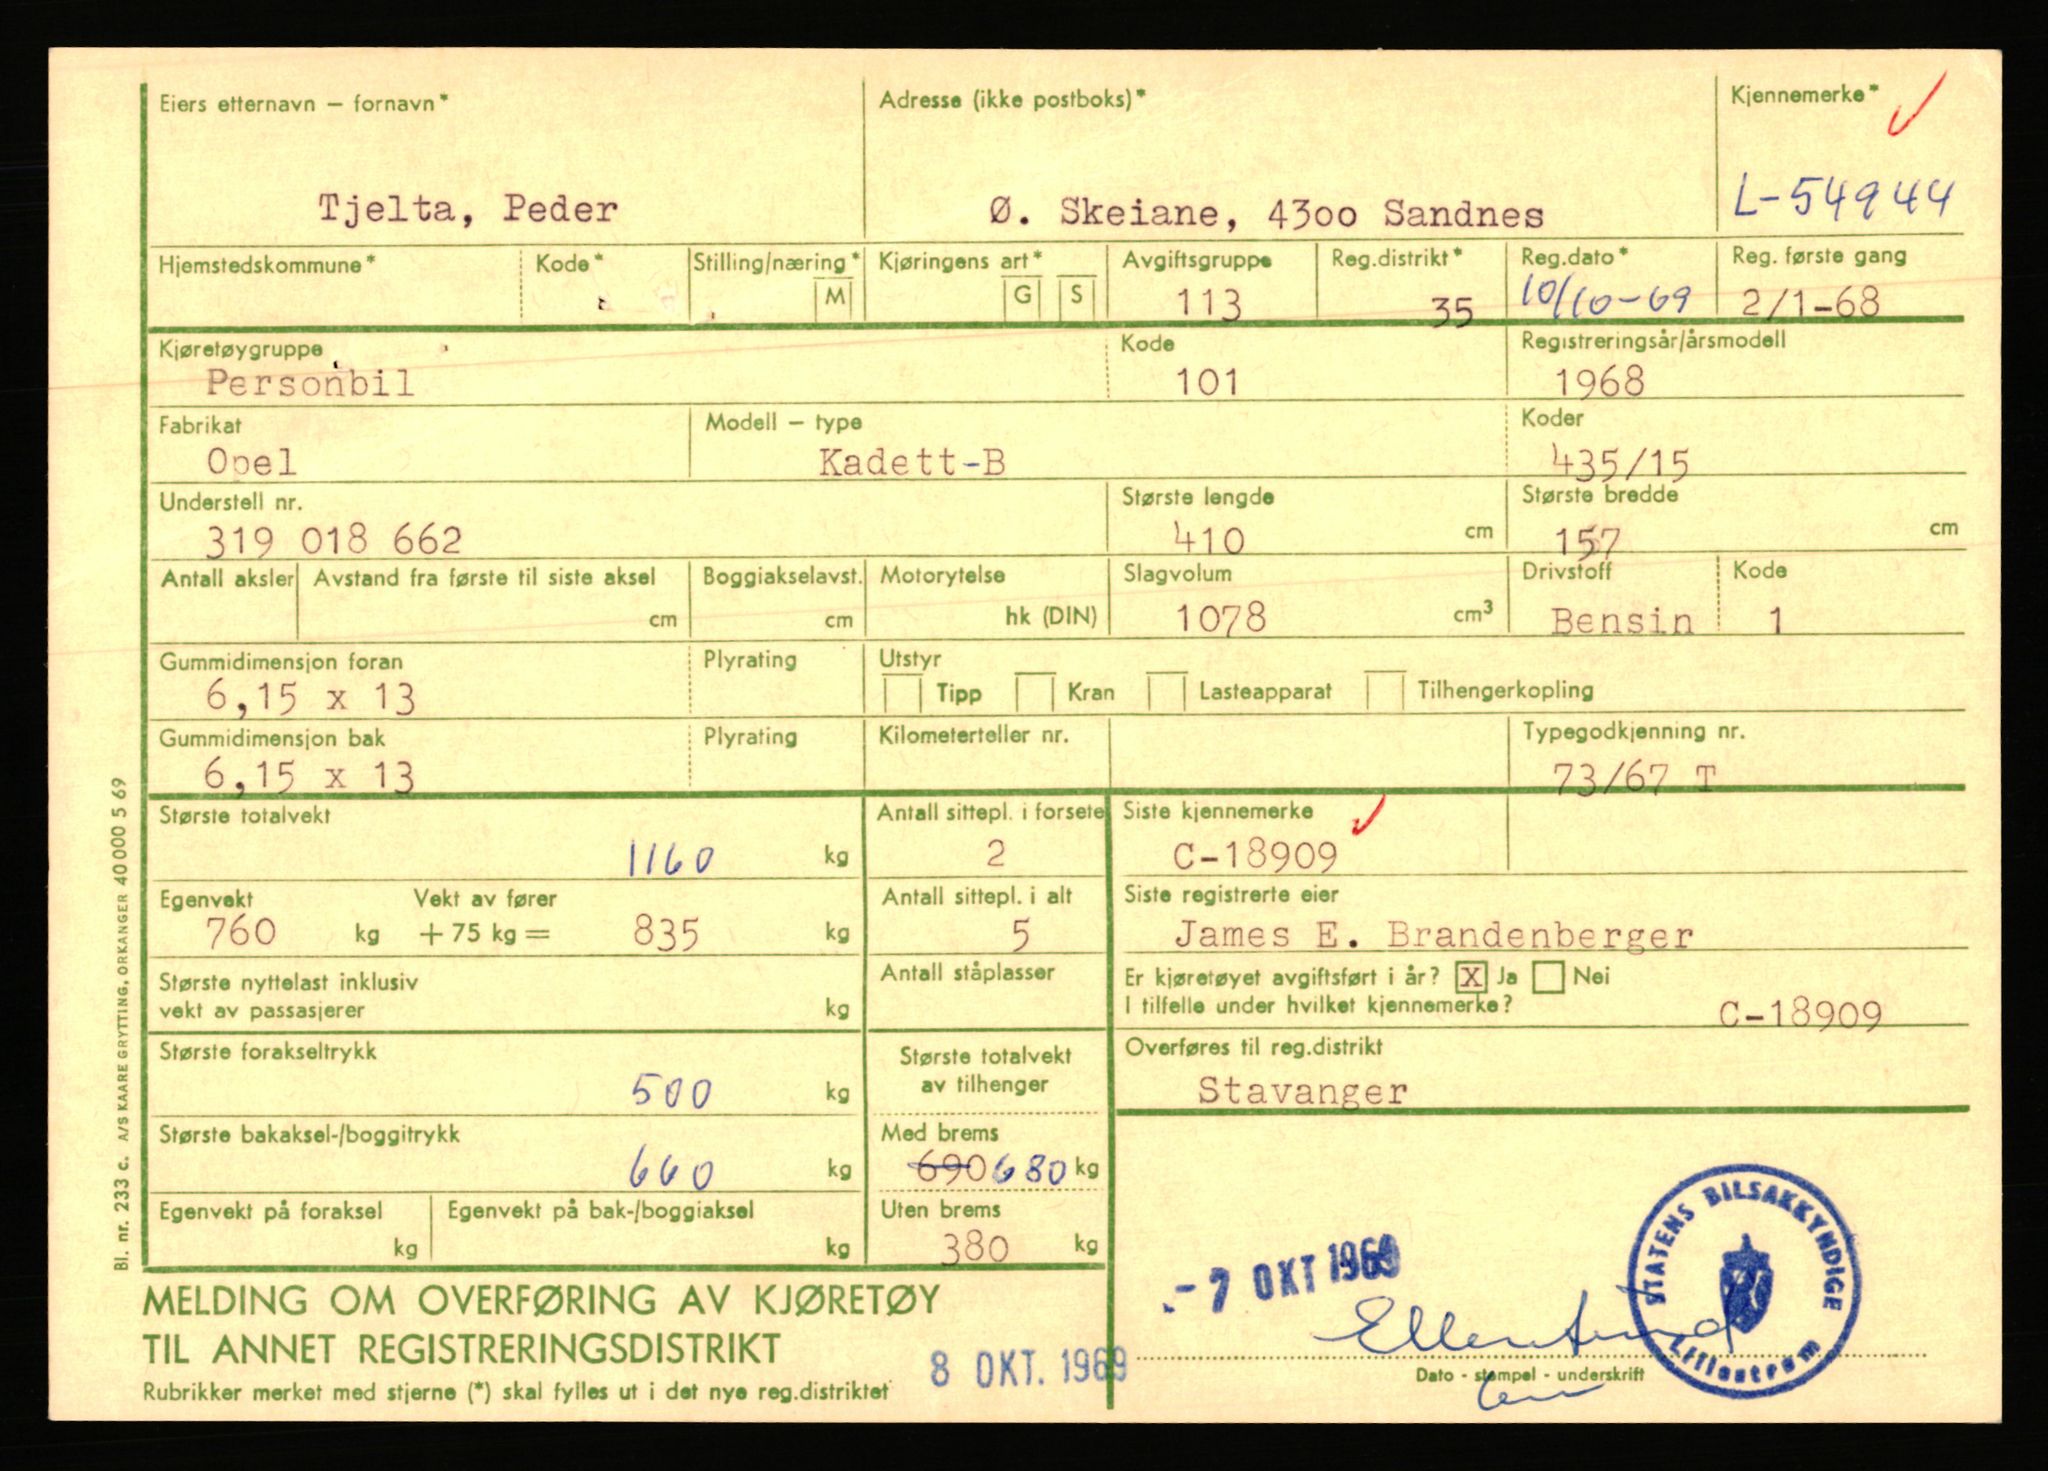 Eiers etternavn – fornavn*
Adresse (ikke postboks)*
Kjennemerke*
Tjelta, Peder
Ø. Skeiane, 4300 Sandnes
L-54944
Hjemstedskommune*
Kode*
Stilling/næring*
M
Kjøringens art*
G
S
Avgiftsgruppe
113
Reg.distrikt*
35
Reg.dato*
10/10-69
Reg. første gang
2/1-68
Kjøretøygruppe
Personbil
Kode
101
Registreringsår/årsmodell
1968
Fabrikat
Opel
Modell – type
Kadett-B
Koder
435/15
Understell nr.
319 018 662
Største lengde
410 cm
Største bredde
157 cm
Antall aksler
Avstand fra første til siste aksel
cm
Boggiakselavst.
cm
Motorytelse
hk (DIN)
Slagvolum
1078 cm³
Drivstoff
Bensin
Kode
1
Gummidimensjon foran
6,15 x 13
Plyrating
Utstyr
Tipp
Kran
Lasteapparat
Tilhengerkopling
Gummidimensjon bak
6,15 x 13
Plyrating
Kilometerteller nr.
Typegodkjenning nr.
73/67 T
Største totalvekt
1160 kg
Antall sittepl. i forsete
2
Siste kjennemerke
C-18909
Egenvekt
760 kg
Vekt av fører
+ 75 kg = 835 kg
Antall sittepl. i alt
5
Siste registrerte eier
James E. Brandenberger
Største nyttelast inklusiv
vekt av passasjerer kg
Antall ståplasser
Er kjøretøyet avgiftsført i år? X Ja Nei
I tilfelle under hvilket kjennemerke?
C-18909
Største forakseltrykk
500 kg
Største totalvekt
av tilhenger
Overføres til reg.distrikt
Stavanger
Største bakaksel-/boggitrykk
660 kg
Med brems
690 680 kg
Egenvekt på foraksel
kg
Egenvekt på bak-/boggiaksel
kg
Uten brems
380 kg
MELDING OM OVERFØRING AV KJØRETØY
TIL ANNET REGISTRERINGSDISTRIKT
Rubrikker merket med stjerne (*) skal fylles ut i det nye reg.distriktet
8 OKT. 1969
-7 OKT 1969
STATENS BILSAKKYNDIGE
Lillestrøm
Dato - stempel - underskrift
Bl. nr. 233 c. A/S KAARE GRYTTING, ORKANGER 40 000 5 69